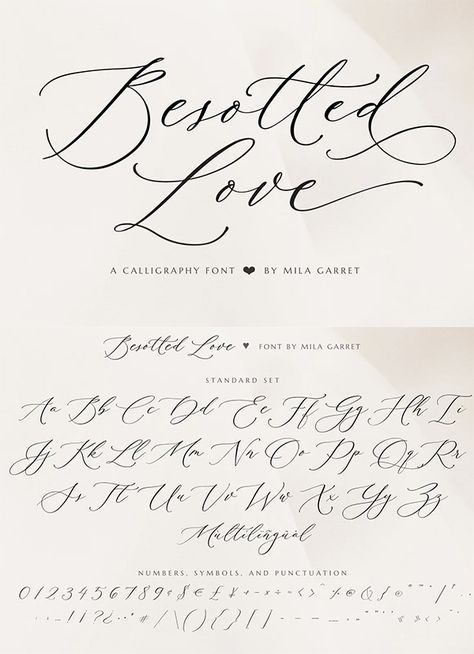 Besotted
Love
A CALLIGRAPHY FONT ♥ BY MILA GARRET
Besotted Love ♥ FONT BY MILA GARRET
STANDARD SET
Aa Bb Cc Dd Ee Ff Gg Hh Ii
Jj Kk Ll Mm Nn Oo Pp Qq Rr
Ss Tt Uu Vv Ww Xx Yy Zz
Multilingüàl
NUMBERS, SYMBOLS, AND PUNCTUATION
0123456789